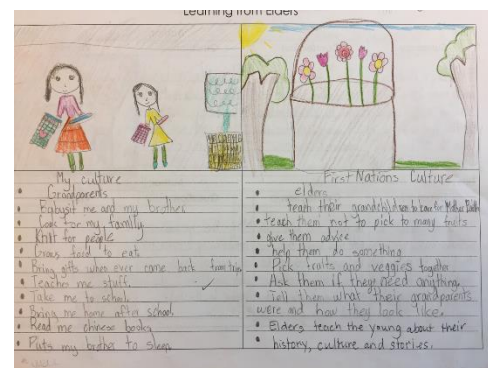 Learning from Elders
My culture
Grandparents
Babysit me and my brother.
Look for my family
Knitt for people
Grows food to eat.
Bring gifts when ever come back from trips
Teaches me stuff.
Take me to school.
Bring me home after school.
Read me chinese books
Puts my brother to sleep.
First Nations Culture
elders
teach their grandchildren to care for Mother Earth
teach them not to pick to many fruits
give them advice
help them do something
Pick fruits and veggies together
Ask them if they need anything.
Tell them what their grandparents
were and how they look like.
Elders teach the young about their
history, culture and stories.